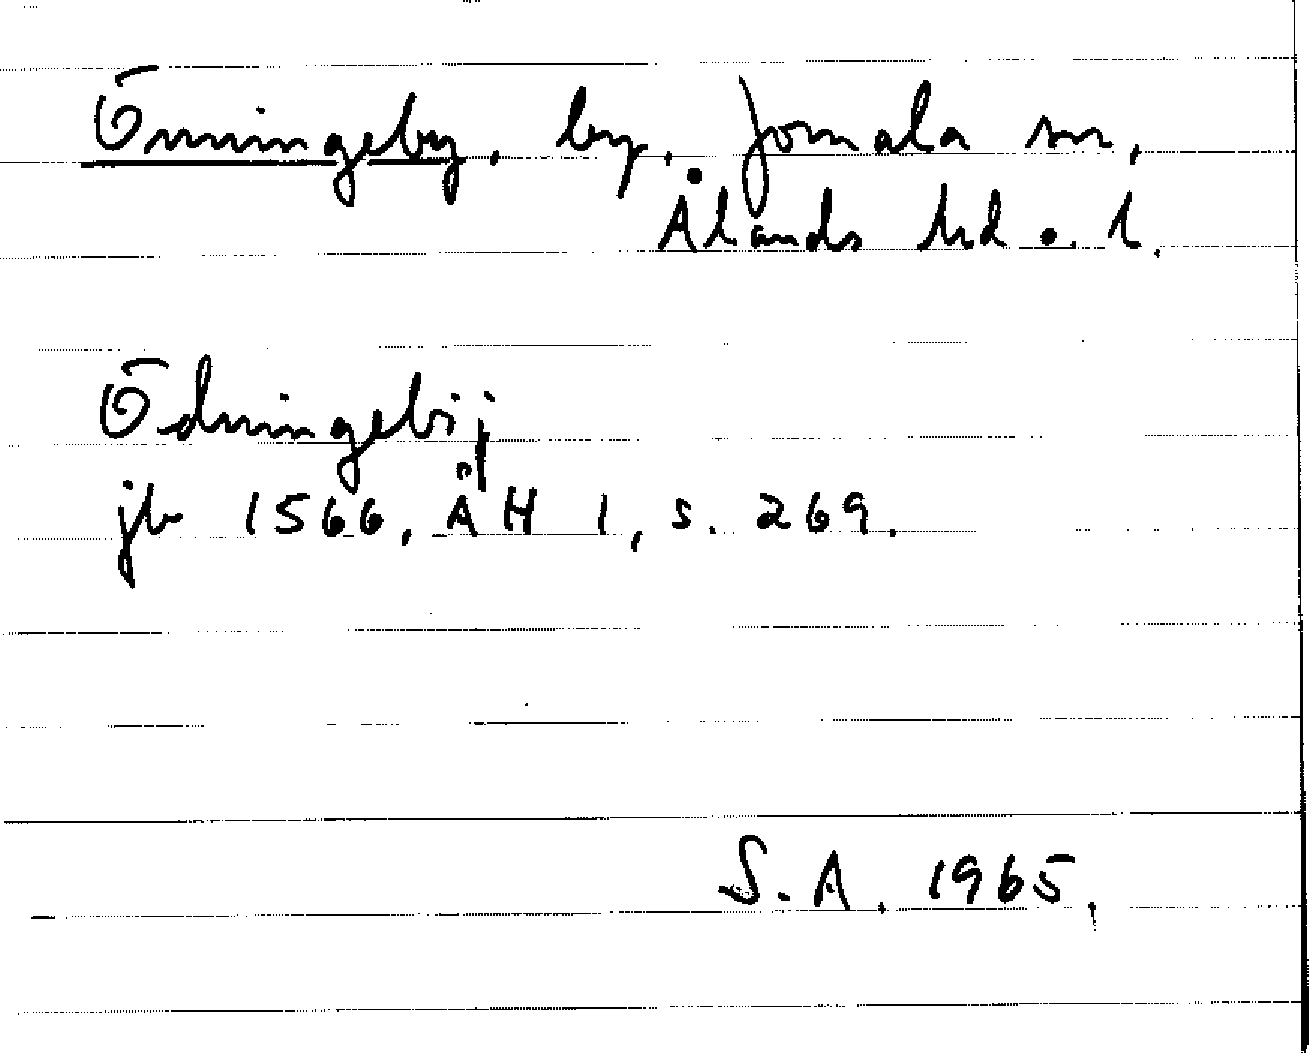 Önningeby, by, Jomala sn,
Ålands hd o. l.
Ödningebij
jb 1566, ÅH 1, s. 269.
S. A. 1965.